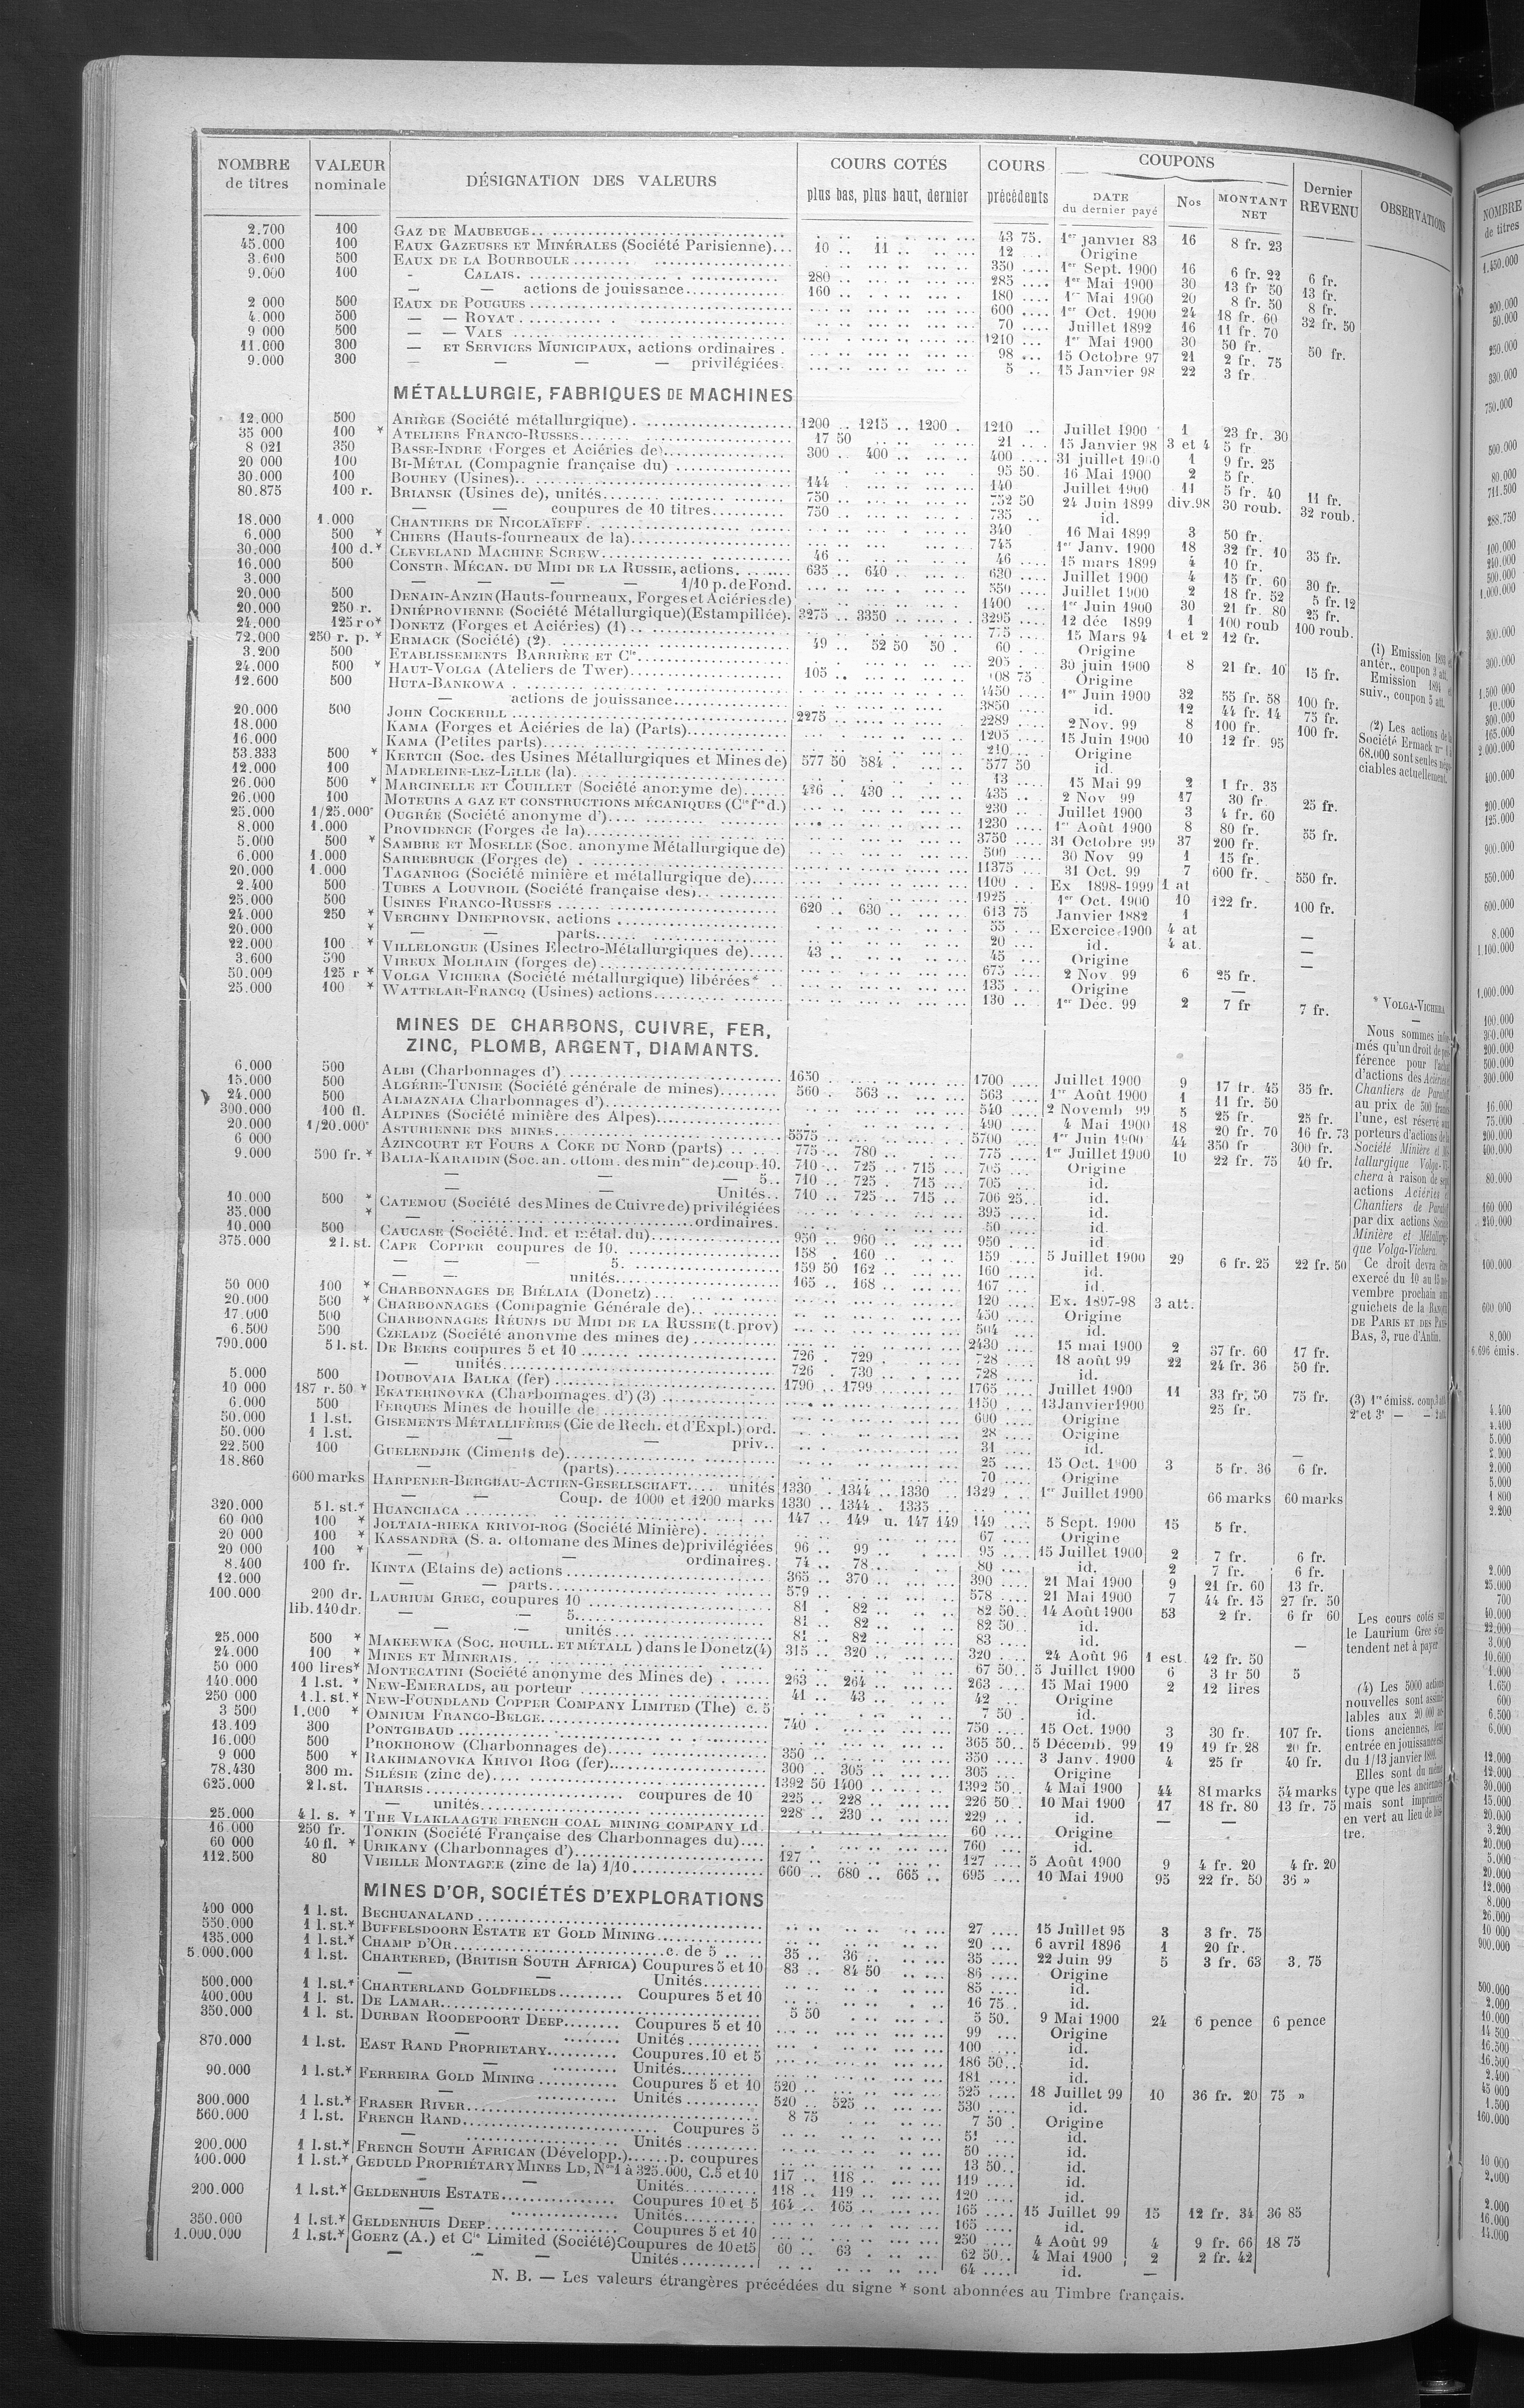 NOMBRE de titres | VALEUR nominale | DÉSIGNATION DES VALEURS | COURS COTÉS plus bas, plus haut, dernier | COURS précédents | COUPONS DATE du dernier payé | Nos | MONTANT NET | Dernier REVENU | OBSERVATIONS
2.700 100 GAZ DE MAUBEUGE 43 75 1er janvier 83 16 8 fr. 23
45.000 100 EAUX GAZEUSES ET MINÉRALES (Société Parisienne) 10 .. 11 .. 12 Origine
3.600 500 EAUX DE LA BOURBOULE 350 1er Sept. 1900 16 6 fr. 22 6 fr.
9.000 100 - CALAIS 280 285 1er Mai 1900 30 13 fr 50 13 fr.
— — actions de jouissance 160 180 1er Mai 1900 20 8 fr. 50 8 fr.
2 000 500 EAUX DE POUGUES 600 1er Oct. 1900 24 18 fr. 60 32 fr. 50
4.000 500 — — ROYAT 70 Juillet 1892 16 11 fr. 70
9 000 500 — — VALS 1210 1er Mai 1900 30 50 fr. 50 fr.
11.000 300 — ET SERVICES MUNICIPAUX, actions ordinaires 98 15 Octobre 97 21 2 fr. 75
9.000 300 — — — privilégiées 5 15 Janvier 98 22 3 fr.
MÉTALLURGIE, FABRIQUES DE MACHINES
12.000 500 ARIÈGE (Société métallurgique) 1200 .. 1215 .. 1200 1210 Juillet 1900 1 23 fr. 30
35 000 100 * ATELIERS FRANCO-RUSSES 17 50 21 15 Janvier 98 3 et 4 5 fr.
8 021 350 BASSE-INDRE (Forges et Aciéries de) 300 .. 400 400 31 juillet 1900 1 9 fr. 25
20 000 100 BI-MÉTAL (Compagnie française du) 95 50 16 Mai 1900 2 5 fr.
30.000 100 BOUHEY (Usines) 144 140 Juillet 1900 11 5 fr. 40 11 fr.
80.875 100 r. BRIANSK (Usines de), unités 750 752 50 24 Juin 1899 div.98 30 roub. 32 roub.
— — coupures de 10 titres 750 735 id.
18.000 1.000 CHANTIERS DE NICOLAÏEFF 340 16 Mai 1899 3 50 fr.
6.000 500 * CHIERS (Hauts-fourneaux de la) 745 1er Janv. 1900 18 32 fr. 10 35 fr.
30.000 100 d.* CLEVELAND MACHINE SCREW 46 46 15 mars 1899 4 10 fr.
16.000 500 CONSTR. MÉCAN. DU MIDI DE LA RUSSIE, actions 635 .. 640 630 Juillet 1900 4 15 fr. 60 30 fr.
3.000 — — — — 1/10 p. de Fond. 550 Juillet 1900 2 18 fr. 52 5 fr. 12
20.000 500 DENAIN-ANZIN (Hauts-fourneaux, Forges et Aciéries de) 1400 1er Juin 1900 30 21 fr. 80 25 fr.
20.000 250 r. DNIÉPROVIENNE (Société Métallurgique) (Estampillée) 3275 .. 3350 3295 12 déc 1899 1 100 roub 100 roub.
24.000 125 ro* DONETZ (Forges et Aciéries) (1) 775 15 Mars 94 1 et 2 12 fr.
72.000 250 r. p. * ERMACK (Société) (2) 49 .. 52 50 50 60 Origine
3.200 500 ETABLISSEMENTS BARRIÈRE ET Cie 205 30 juin 1900 8 21 fr. 10 15 fr.
24.000 500 * HAUT-VOLGA (Ateliers de Twer) 105 108 75 Origine
12.600 500 HUTA-BANKOWA 4450 1er Juin 1900 32 55 fr. 58 100 fr.
— actions de jouissance 3850 id. 12 44 fr. 14 75 fr.
20.000 500 JOHN COCKERILL 2275 2289 2 Nov. 99 8 100 fr. 100 fr.
18.000 KAMA (Forges et Aciéries de la) (Parts) 1205 15 Juin 1900 10 12 fr 95
16.000 KAMA (Petites parts) 210 Origine
53.333 500 * KERTCH (Soc. des Usines Métallurgiques et Mines de) 577 50 584 577 50 id.
12.000 100 MADELEINE-LEZ-LILLE (la) 13 15 Mai 99 2 1 fr. 35
26.000 500 * MARCINELLE ET COUILLET (Société anonyme de) 426 .. 430 435 2 Nov 99 17 30 fr. 25 fr.
26.000 100 MOTEURS A GAZ ET CONSTRUCTIONS MÉCANIQUES (Cie fse d.) 230 Juillet 1900 3 4 fr. 60
25.000 1/25.000* OUGRÉE (Société anonyme d') 1230 1er Août 1900 8 80 fr. 55 fr.
8.000 1.000 PROVIDENCE (Forges de la) 3750 31 Octobre 99 37 200 fr.
5.000 500 * SAMBRE ET MOSELLE (Soc. anonyme Métallurgique de) 500 30 Nov 99 1 15 fr.
6.000 1.000 SARREBRUCK (Forges de) 11375 31 Oct. 99 7 600 fr. 550 fr.
20.000 1.000 TAGANROG (Société minière et métallurgique de) 1100 Ex 1898-1999 1 at
2.400 500 TUBES A LOUVROIL (Société française des) 1925 1er Oct. 1900 10 122 fr. 100 fr.
25.000 500 USINES FRANCO-RUSSES 620 .. 630 613 75 Janvier 1882 1
24.000 250 * VERCHNY DNIEPROVSK, actions 55 Exercice 1900 4 at —
20.000 * — — parts 20 id. 4 at. —
22.000 100 * VILLELONGUE (Usines Electro-Métallurgiques de) 43 45 Origine —
3.600 500 VIREUX MOLHAIN (forges de) 675 2 Nov 99 6 25 fr.
50.000 125 r * VOLGA VICHERA (Société métallurgique) libérées* 135 Origine —
25.000 100 * WATTELAR-FRANCQ (Usines) actions 130 1er Déc. 99 2 7 fr 7 fr.
(1) Emission
antér., coupon 3 att.
Emission 1894 et
suiv., coupon 5 att.
(2) Les actions de la
Société Ermack
68.000 sont seules négo-
ciables actuellement.
MINES DE CHARBONS, CUIVRE, FER,
ZINC, PLOMB, ARGENT, DIAMANTS.
6.000 500 ALBI (Charbonnages d') 1650 1700 Juillet 1900 9 17 fr. 45 35 fr.
15.000 500 ALGÉRIE-TUNISIE (Société générale de mines) 560 563 563 1er Août 1900 1 11 fr. 50
24.000 500 ALMAZNAIA Charbonnages d') 540 2 Novemb 99 5 25 fr. 25 fr.
300.000 100 fl. ALPINES (Société minière des Alpes) 490 4 Mai 1900 18 20 fr. 70 16 fr. 73
20.000 1/20.000* ASTURIENNE DES MINES 5575 5700 1er Juin 1900 44 350 fr 300 fr.
6 000 AZINCOURT ET FOURS A COKE DU NORD (parts) 775 .. 780 775 1er Juillet 1900 10 22 fr. 75 40 fr.
9.000 500 fr. * BALIA-KARAIDIN (Soc. an. ottom. des mines de) coup. 10. 710 .. 725 .. 715 705 Origine
— — — 5 710 .. 725 . 715 705 id.
— — Unités 710 .. 725 .. 715 706 25 id.
10.000 500 * CATEMOU (Société des Mines de Cuivre de) privilégiées 395 id.
35.000 * — ordinaires. 50 id
10.000 500 CAUCASE (Société. Ind. et métal. du) 950 .. 960 950 id
375.000 2 l. st. CAPE COPPER coupures de 10. 158 . 160 159 5 Juillet 1900 29 6 fr. 25 22 fr. 50
— — — 5. 159 50 162 160 id.
— — unités 165 .. 168 167 id.
50 000 100 * CHARBONNAGES DE BIÉLAIA (Donetz) 120 Ex. 1897-98 3 att.
20.000 500 * CHARBONNAGES (Compagnie Générale de) 450 Origine
17.000 500 CHARBONNAGES RÉUNIS DU MIDI DE LA RUSSIE (t. prov) 504 id.
6.500 500 CZELADZ (Société anonyme des mines de) 2430 15 mai 1900 2 37 fr. 60 17 fr.
790.000 5 l. st. DE BEERS coupures 5 et 10 726 . 729 728 18 août 99 22 24 fr. 36 50 fr.
— unités 726 . 730 728 id.
5.000 500 DOUBOVAIA BALKA (fer) 1790 .. 1799 1765 Juillet 1900 11 33 fr. 50 75 fr.
10 000 187 r. 50 * EKATERINOVKA (Charbonnages d') (3) 1150 13 Janvier 1900 25 fr.
6.000 500 FERQUES Mines de houille de 600 Origine
50.000 1 l.st. GISEMENTS MÉTALLIFÈRES (Cie de Rech. et d'Expl.) ord. 28 Origine
50.000 1 l.st. — — — priv. 31 id.
22.500 100 GUELENDJIK (Ciments de) 25 15 Oct. 1900 3 5 fr. 36 6 fr.
18.860 — (parts) 70 Origine
600 marks HARPENER-BERGBAU-ACTIEN-GESELLSCHAFT unités 1330 . 1344 .. 1330 1329 1er Juillet 1900 66 marks 60 marks
— — Coup. de 1000 et 1200 marks 1330 .. 1344 . 1335
320.000 5 l. st.* HUANCHACA 147 .. 149 u. 147 149 149 5 Sept. 1900 15 5 fr.
60 000 100 * JOLTAIA-RIEKA KRIVOI-ROG (Société Minière) 67 Origine
20 000 100 * KASSANDRA (S. a. ottomane des Mines de) privilégiées 96 .. 99 95 15 Juillet 1900 2 7 fr. 6 fr.
20 000 100 * — — ordinaires. 74 .. 78 80 id. 2 7 fr. 6 fr.
8.400 100 fr. KINTA (Etains de) actions 365 .. 370 390 21 Mai 1900 9 21 fr. 60 13 fr.
12.000 — — parts 579 578 21 Mai 1900 7 44 fr. 15 27 fr. 50
100.000 200 dr. LAURIUM GREC, coupures 10 81 . 82 82 50 14 Août 1900 53 2 fr. 6 fr 60
lib. 140 dr. — — 5. 81 .. 82 82 50 id.
— — unités 81 .. 82 83 id.
25.000 500 * MAKEEWKA (SOC. HOUILL. ET MÉTALL ) dans le Donetz (4) 315 .. 320 320 24 Août 96 1 est. 42 fr. 50 —
24.000 100 * MINES ET MINERAIS. 67 50 5 Juillet 1900 6 3 fr 50 5
50 000 100 lires* MONTECATINI (Société anonyme des Mines de) 263 .. 264 263 15 Mai 1900 2 12 lires
140.000 1 l.st. * NEW-EMERALDS, au porteur 41 .. 43 42 Origine
250 000 1.l. st.* NEW-FOUNDLAND COPPER COMPANY LIMITED (The) c. 5 7 50 id.
3 500 1.000 * OMNIUM FRANCO-BELGE 740 750 15 Oct. 1900 3 30 fr. 107 fr.
13.109 300 PONTGIBAUD 365 50 5 Décemb. 99 19 19 fr. 28 20 fr.
16.000 500 PROKHOROW (Charbonnages de) 350 350 3 Janv. 1900 4 25 fr 40 fr.
9 000 500 * RAKHMANOVKA KRIVOI ROG (fer) 300 .. 305 305 Origine
78.430 300 m. SILÉSIE (zinc de) 1392 50 1400 1392 50 4 Mai 1900 44 81 marks 54 marks
625.000 2 l.st. THARSIS coupures de 10 225 .. 228 226 50 10 Mai 1900 17 18 fr. 80 13 fr. 75
— unités 228 .. 230 229 id. — —
25.000 4 l. s. * THE VLAKLAAGTE FRENCH COAL MINING COMPANY Ld 60 Origine
16.000 250 fr. TONKIN (Société Française des Charbonnages du) 760 id.
60 000 40 fl. * URIKANY (Charbonnages d') 127 127 5 Août 1900 9 4 fr. 20 4 fr. 20
112.500 80 VIEILLE MONTAGNE (zinc de la) 1/10 660 .. 680 .. 665 695 10 Mai 1900 95 22 fr. 50 36 »
* VOLGA-VICHERA
Nous sommes infor-
més qu'un droit de pré-
férence pour l'achat
d'actions des Aciéries et
Chantiers de
au prix de 500 francs
l'une, est réservé aux
porteurs d'actions de la
Société Minière et Mé-
tallurgique Volga-Vi-
chera à raison de sept
actions Aciéries et
Chantiers de
par dix actions Société
Minière et Métallurgi-
que Volga-Vichera.
Ce droit devra être
exercé du 10 au 15 no-
vembre prochain aux
guichets de la BANQUE
DE PARIS ET DES PAYS-
BAS, 3, rue d'Antin.
(3) 1re émiss. coup. 3 att.
2e et 3e — — 2 att.
Les cours cotés sur
le Laurium Grec s'en-
tendent net à payer
(4) Les 5000 actions
nouvelles sont assimi-
lables aux 20 000 ac-
tions anciennes, leur
entrée en jouissance est
du 1/13 janvier
Elles sont du même
type que les anciennes
mais sont imprimées
en vert au lieu de bis-
tre.
MINES D'OR, SOCIÉTÉS D'EXPLORATIONS
400 000 1 l. st. BECHUANALAND 27 15 Juillet 95 3 3 fr. 75
550.000 1 l. st.* BUFFELSDOORN ESTATE ET GOLD MINING 20 6 avril 1896 1 20 fr.
135.000 1 l.st.* CHAMP D'OR c. de 5 35 .. 36 35 22 Juin 99 5 3 fr. 63 3. 75
5.000.000 1 l.st. CHARTERED, (BRITISH SOUTH AFRICA) Coupures 5 et 10 83 .. 84 50 86 Origine
— — Unités 85 id.
500.000 1 l.st.* CHARTERLAND GOLDFIELDS Coupures 5 et 10 16 75 id.
400.000 1 l. st. DE LAMAR 5 50 5 50 9 Mai 1900 24 6 pence 6 pence
350.000 1 l. st. DURBAN ROODEPOORT DEEP Coupures 5 et 10 99 Origine
— Unités 100 id.
870.000 1 l.st. EAST RAND PROPRIETARY Coupures. 10 et 5 186 50 id.
— Unités 181 id.
90.000 1 l.st.* FERREIRA GOLD MINING Coupures 5 et 10 520 525 18 Juillet 99 10 36 fr. 20 75 »
— Unités 520 .. 525 530 id.
300.000 1 l.st.* FRASER RIVER 8 75 7 50 Origine
560.000 1 l.st. FRENCH RAND Coupures 5 51 id.
— Unités 50 id.
200.000 1 l.st.* FRENCH SOUTH AFRICAN (Développ.) p. coupures 13 50 id.
400.000 1 l.st.* GEDULD PROPRIÉTARY MINES LD, Nos 1 à 325.000, C. 5 et 10 117 .. 118 119 id.
— — Unités 118 .. 119 120 id.
200.000 1 l.st.* GELDENHUIS ESTATE Coupures 10 et 5 164 .. 165 165 15 Juillet 99 15 12 fr. 34 36 85
— Unités 165 id.
350.000 1 l.st.* GELDENHUIS DEEP Coupures 5 et 10 250 4 Août 99 4 9 fr. 66 18 75
1.000.000 1 l.st.* GOERZ (A.) et Cie Limited (Société) Coupures de 10 et 5 60 .. 63 62 50 4 Mai 1900 2 2 fr. 42
— — — Unités 64 id. —
N. B. — Les valeurs étrangères précédées du signe * sont abonnées au Timbre français.
NOMBRE
de titres